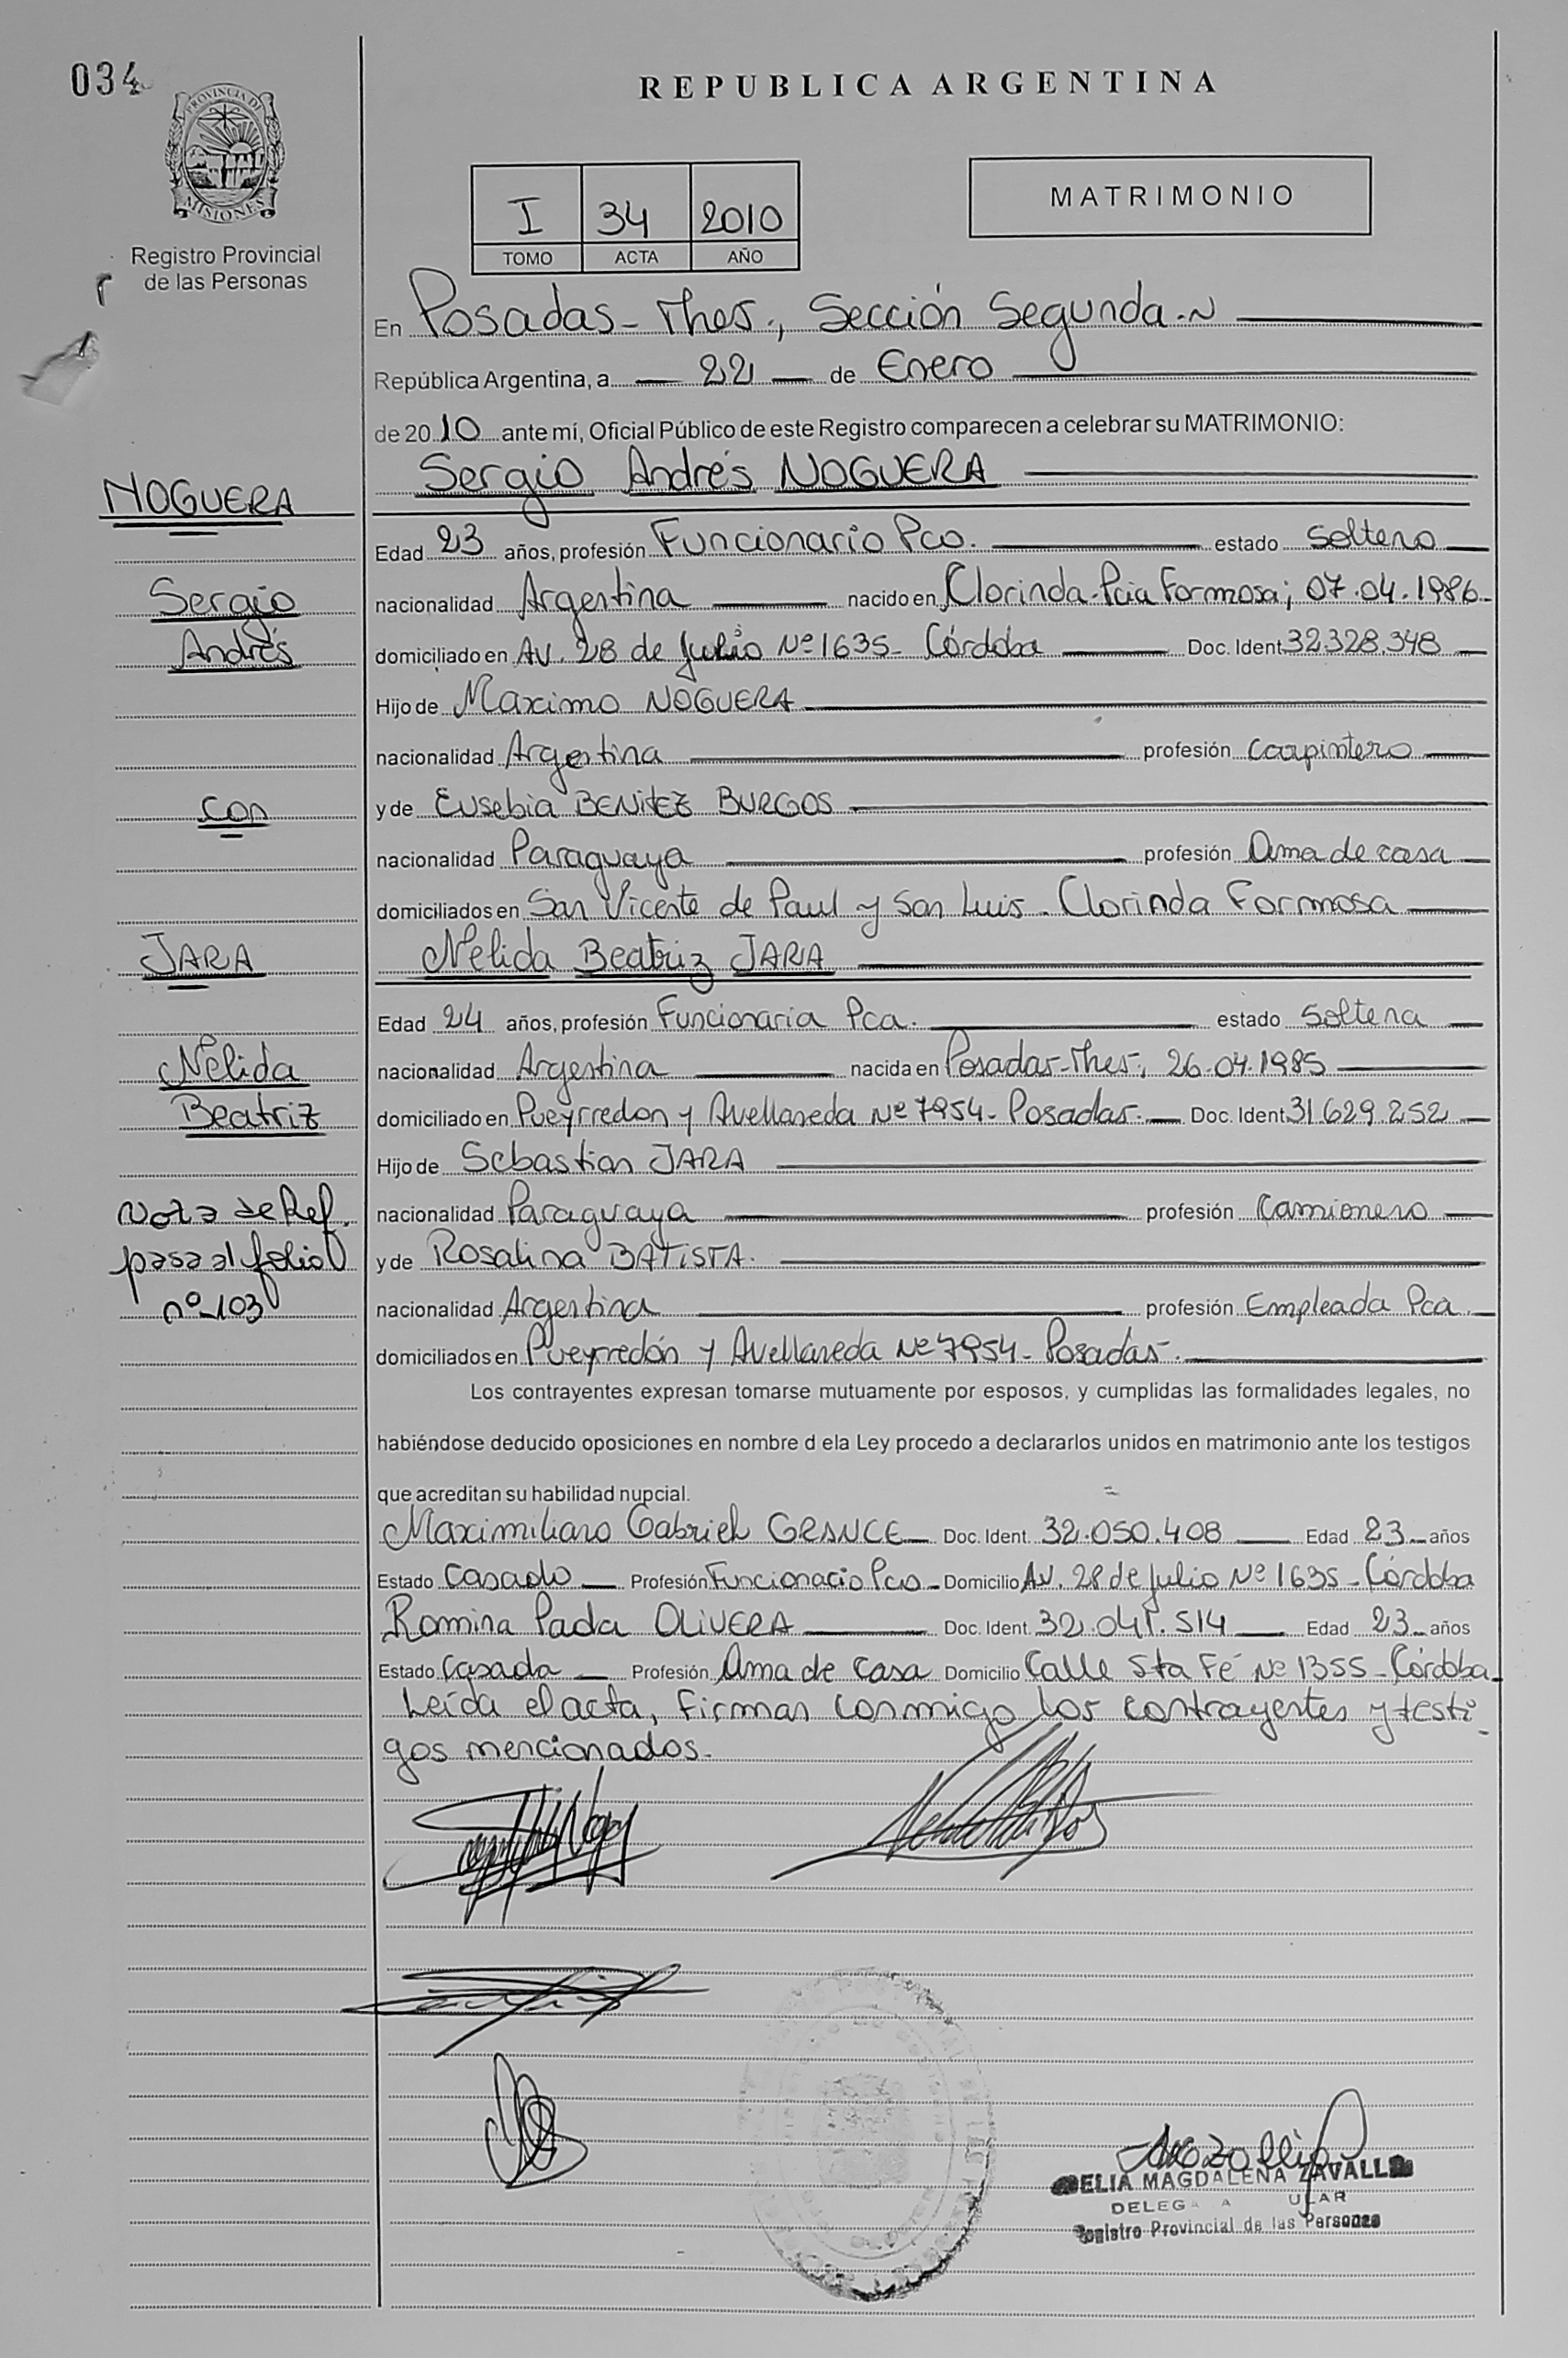 034
REPUBLICA ARGENTINA
PROVINCIA DE
MISIONES
Registro Provincial
de las Personas
I 34 2010
TOMO ACTA AÑO
MATRIMONIO
En Posadas - Mnes., Sección Segunda.~
República Argentina, a 22 de Enero
de 2010 ante mí, Oficial Público de este Registro comparecen a celebrar su MATRIMONIO:
NOGUERA
Sergio Andrés NOGUERA
Edad 23 años, profesión Funcionario Pco. estado Soltero
Sergio
nacionalidad Argentina nacido en Clorinda-Pcia Formosa; 07.04.1986
Andrés
domiciliado en Av. 28 de Julio Nº 1635 - Córdoba Doc. Ident. 32.328.348
Hijo de Maximo NOGUERA
nacionalidad Argentina profesión Carpintero
con
y de Eusebia BENITEZ BURGOS
nacionalidad Paraguaya profesión Ama de casa
domiciliados en San Vicente de Paul y San Luis - Clorinda Formosa
JARA
Nélida Beatriz JARA
Edad 24 años, profesión Funcionaria Pca. estado Soltera
Nélida
nacionalidad Argentina nacida en Posadas-Mnes; 26.04.1985
Beatriz
domiciliado en Pueyrredon y Avellaneda Nº 7954 - Posadas. Doc. Ident. 31.629.252
Hijo de Sebastian JARA
Nota de Ref.
nacionalidad Paraguaya profesión Camionero
pasa al folio
y de Rosalina BATISTA.
nº 103
nacionalidad Argentina profesión Empleada Pca.
domiciliados en Pueyrredón y Avellaneda Nº 7954 - Posadas.
Los contrayentes expresan tomarse mutuamente por esposos, y cumplidas las formalidades legales, no
habiéndose deducido oposiciones en nombre d ela Ley procedo a declararlos unidos en matrimonio ante los testigos
que acreditan su habilidad nupcial.
Maximiliano Gabriel GRANCE Doc. Ident. 32.050.408 Edad 23 años
Estado Casado Profesión Funcionario Pco Domicilio Av. 28 de Julio Nº 1635 - Córdoba
Romina OLIVERA Doc. Ident. 32.041.514 Edad 23 años
Estado Casada Profesión Ama de Casa Domicilio Calle Sta Fé Nº 1355 - Córdoba
Leída el acta, firman conmigo los contrayentes y testi-
gos mencionados.
ELIA MAGDALENA
Registro Provincial de las Personas